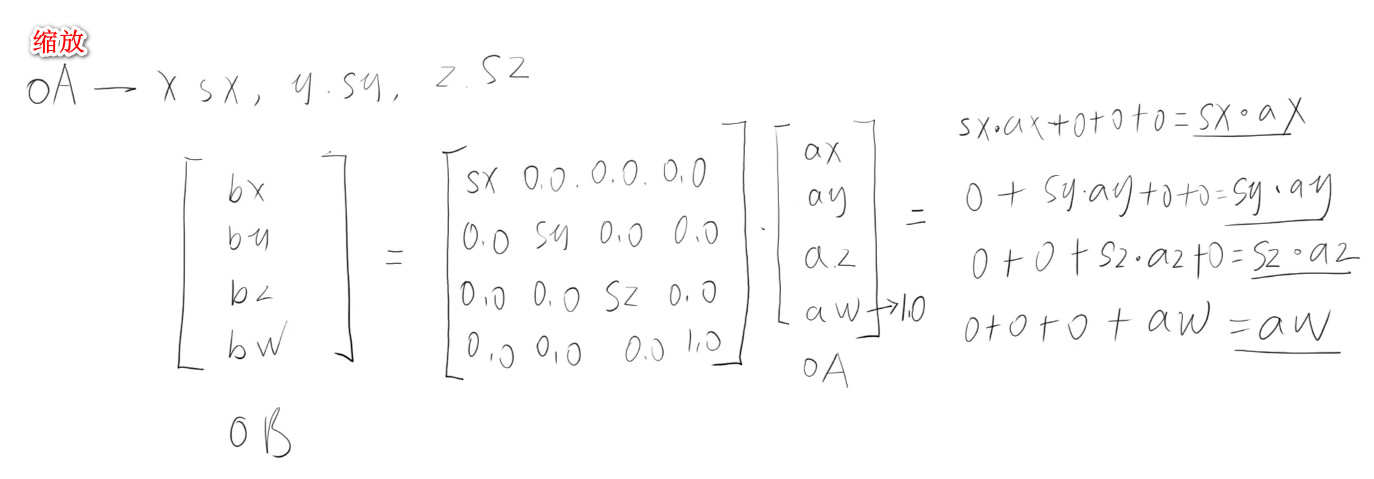 缩放
OA — x sx, y.sy, z.sz
bx
by
bz
bw
=
sx 0.0. 0.0. 0.0
0.0 sy 0.0 0.0
0.0 0.0 sz 0.0
0.0 0.0 0.0 1.0
·
ax
ay
a.z
aw→1.0
OA
=
sx·ax+0+0+0=sx·ax
0+sy·ay+0+0=sy·ay
0+0+sz·az+0=sz·az
0+0+0+aw=aw
OB